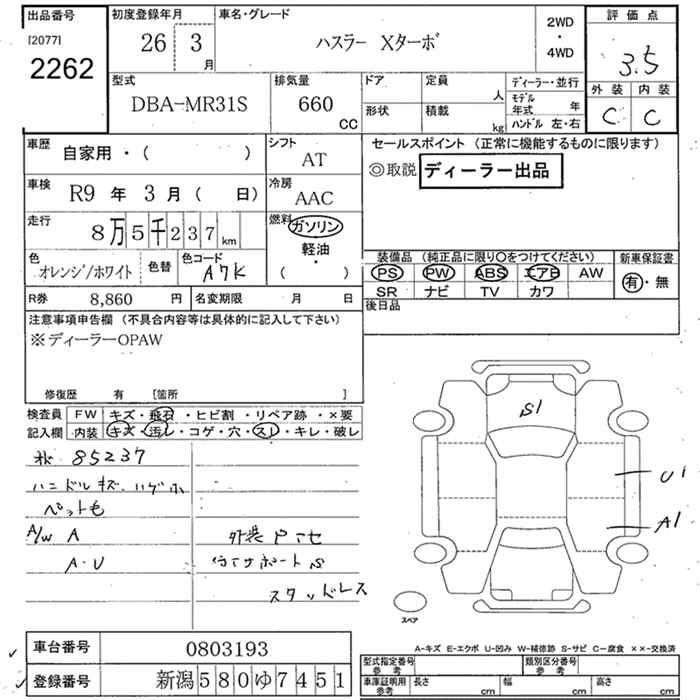 出品番号
[2077]
2262
初度登録年月
26 3
月
車名・グレード
ハスラー Xターボ
2WD
・
4WD
評価点
3.5
外装 内装
C C
型式
DBA-MR31S
排気量
660
CC
ドア
形状
定員
人
積載
kg
ディーラー・並行
モデル
年式 年
ハンドル 左・右
車歴
自家用・( )
シフト
AT
車検
R9 年 3 月 ( 日)
冷房
AAC
走行
8万5千237km
燃料
ガソリン
軽油・
( )
色
オレンジ/ホワイト
色替
色コード
A7K
R券 8,860 円
名変期限 月 日
セールスポイント (正常に機能するものに限ります)
◎取説 ディーラー出品
装備品 (純正品に限り〇をつけてください)
PS PW ABS エアB AW
SR ナビ TV カワ
新車保証書
有・無
後日品
注意事項申告欄 (不具合内容等は具体的に記入して下さい)
※ディーラーOPAW
修復歴 有 [箇所 ]
検査員
記入欄
FW キズ・飛石・ヒビ割・リペア跡・×要
内装 キズ・汚レ・コゲ・穴・スレ・キレ・破レ
85237
ハンドルキズ、ハゲ
ペット毛
A/W A
A・U
外装
S
スタッドレス
S1
U1
A1
スペア
A-キズ E-エクボ U-凹み W-補修跡 S-サビ C-腐食 ××-交換済
車台番号 0803193
登録番号 新潟580ゆ7451
型式指定番号
参考
類別区分番号
参考
車庫証明用
参考
長さ cm
幅 cm
高さ cm